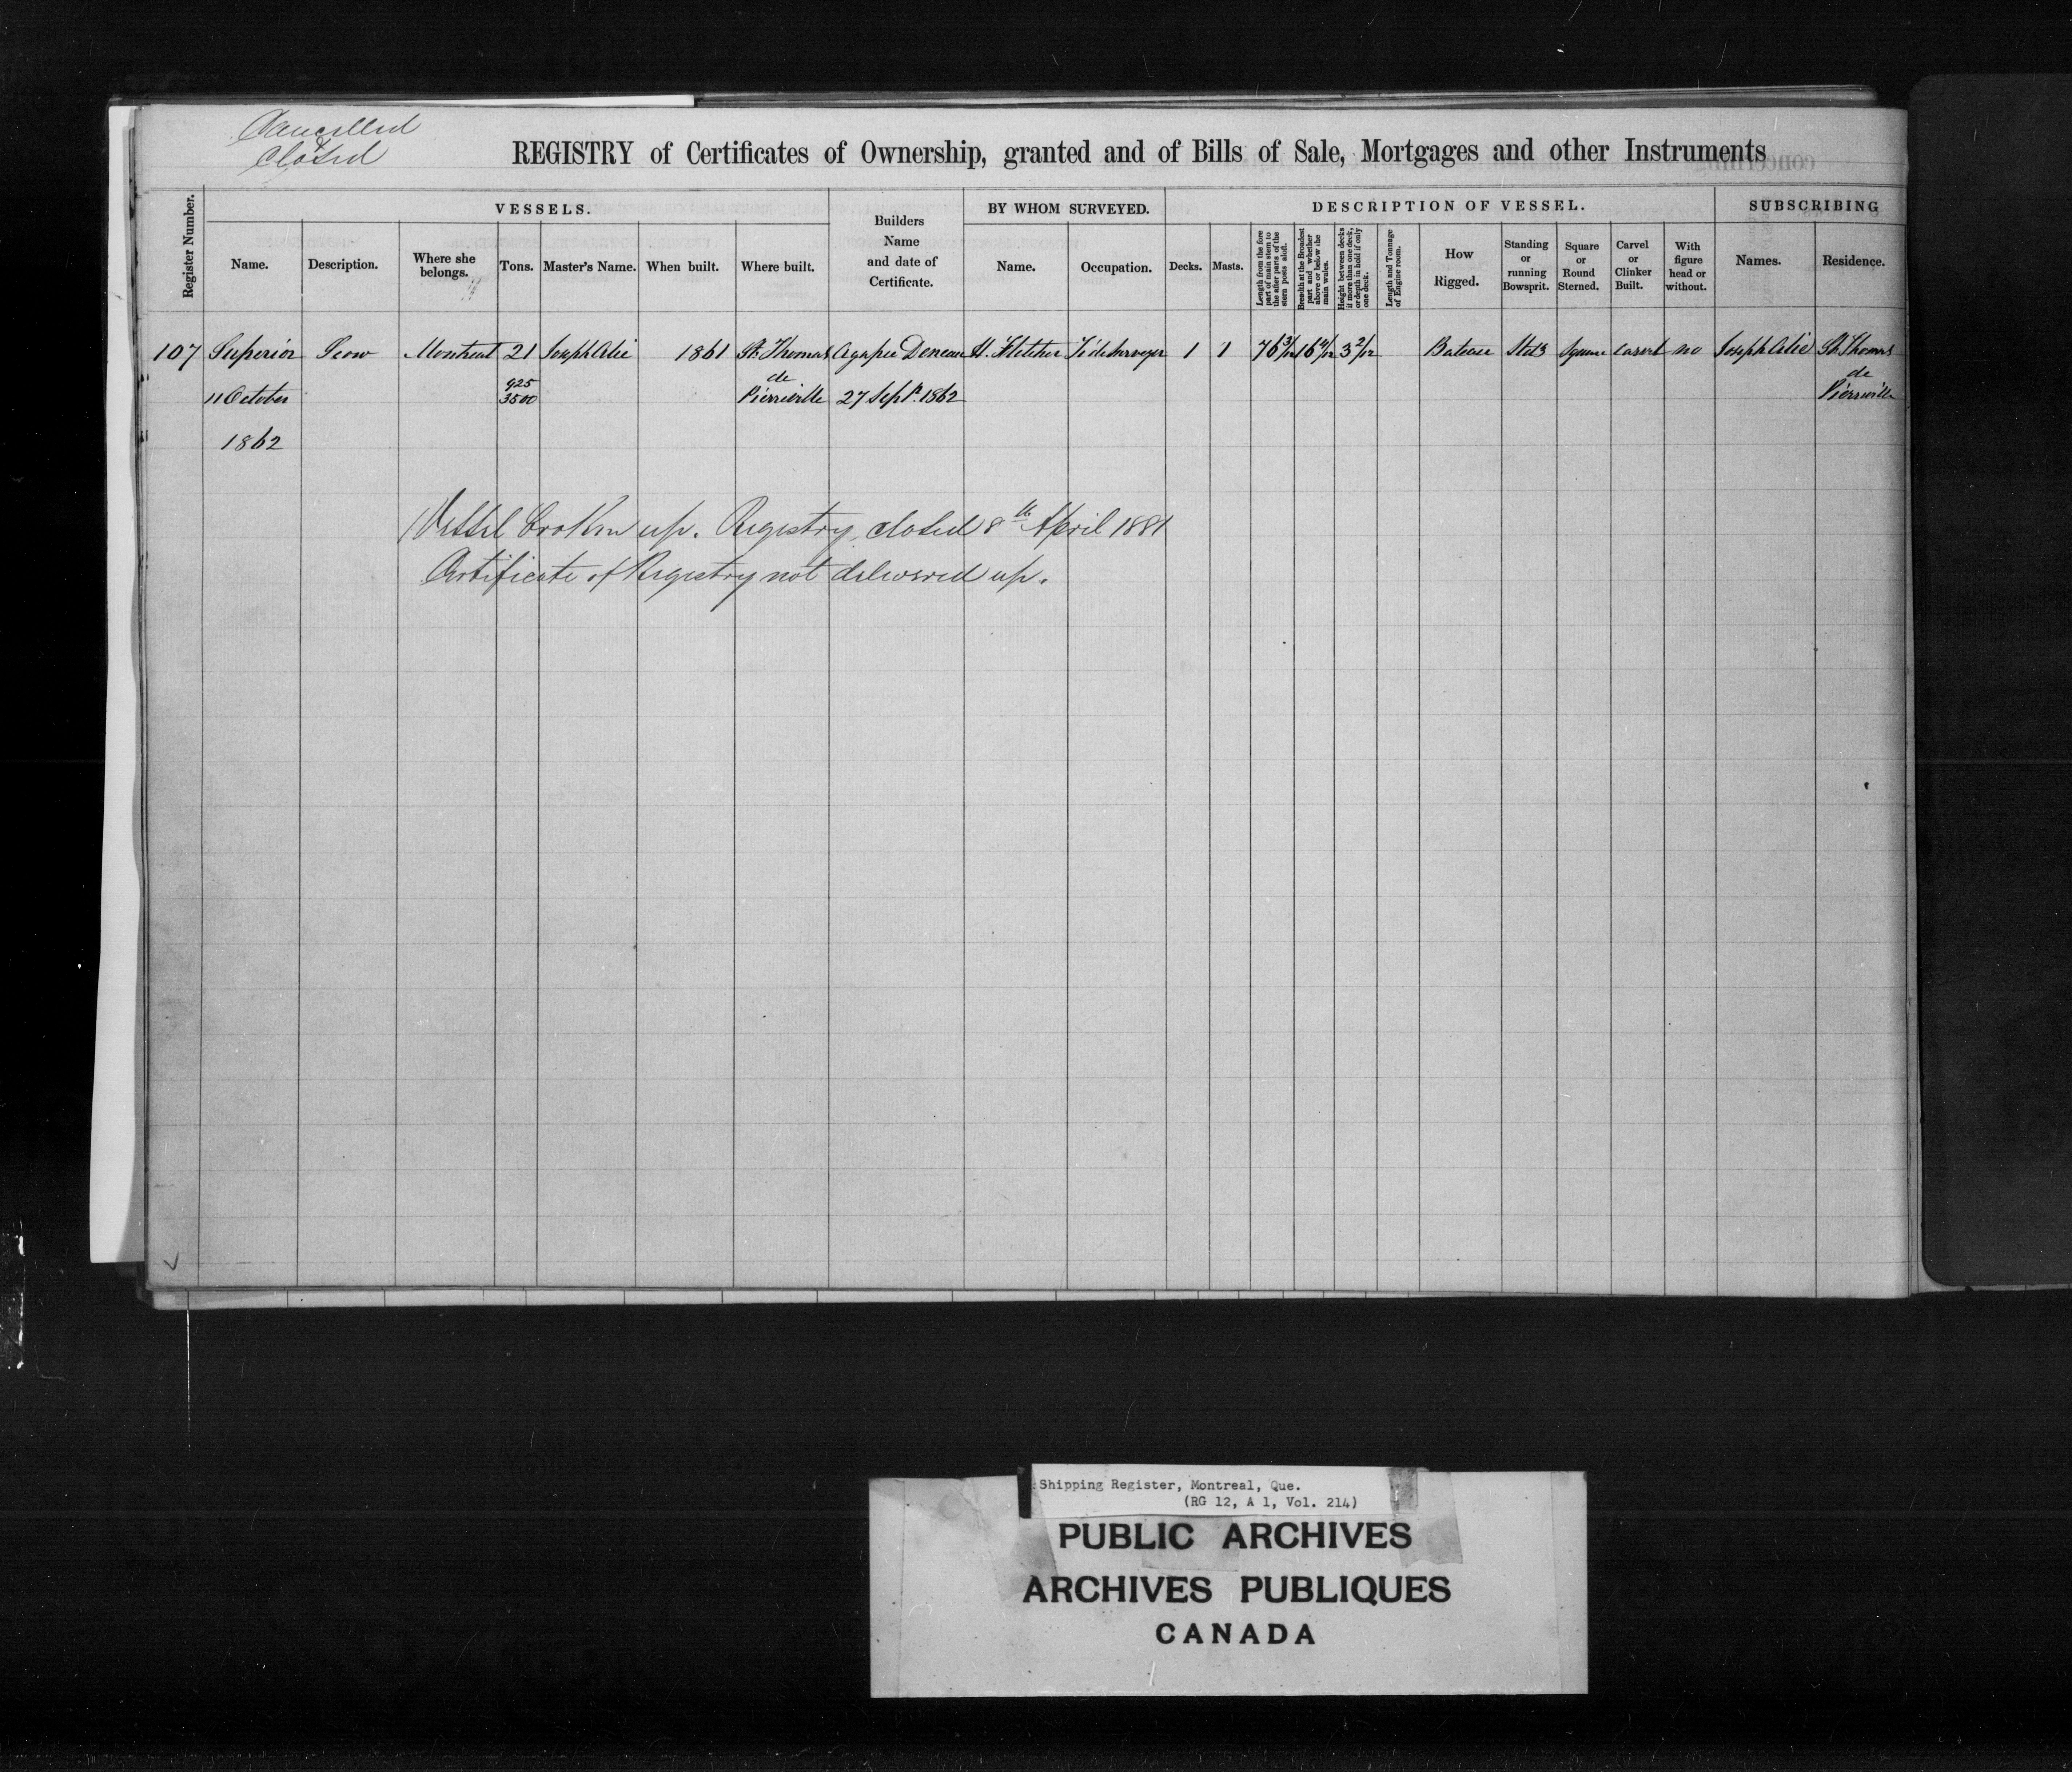 Cancelled
&
Closed
REGISTRY of Certificates of Ownership, granted and of Bills of Sale, Mortgages and other Instruments
Register Number.
VESSELS.
Name.
Description.
Where she belongs.
Tons.
Master's Name.
When built.
Where built.
Builders Name and date of Certificate.
BY WHOM SURVEYED.
Name.
Occupation.
DESCRIPTION OF VESSEL.
Decks.
Masts.
Length from the fore part of main stem to the after part of the stern posts aloft.
Breadth at the Broadest part and whether above or below the main wales.
Height between decks if more than one deck, or depth in hold if only one deck.
Length and Tonnage of Engine room.
How Rigged.
Standing or running Bowsprit.
Square or Round Sterned.
Carvel or Clinker Built.
With figure head or without.
SUBSCRIBING
Names.
Residence.
107 Superior Scow Montreal 21 Joseph Alie 1861 St. Thomas Agapee Deneau H. Fletcher Tide Surveyor 1 1 76 3/12 16 4/12 3 2/12 Bateau Square carvel no Joseph Alie St. Thomas
11 October 925/3500 de Pierreville 27 Sept. 1862 de Pierreville
1862
Vessel broken up. Registry closed 8th April 1881
Certificate of Registry not delivered up.
Shipping Register, Montreal, Que.
(RG 12, A 1, Vol. 214)
PUBLIC ARCHIVES
ARCHIVES PUBLIQUES
CANADA